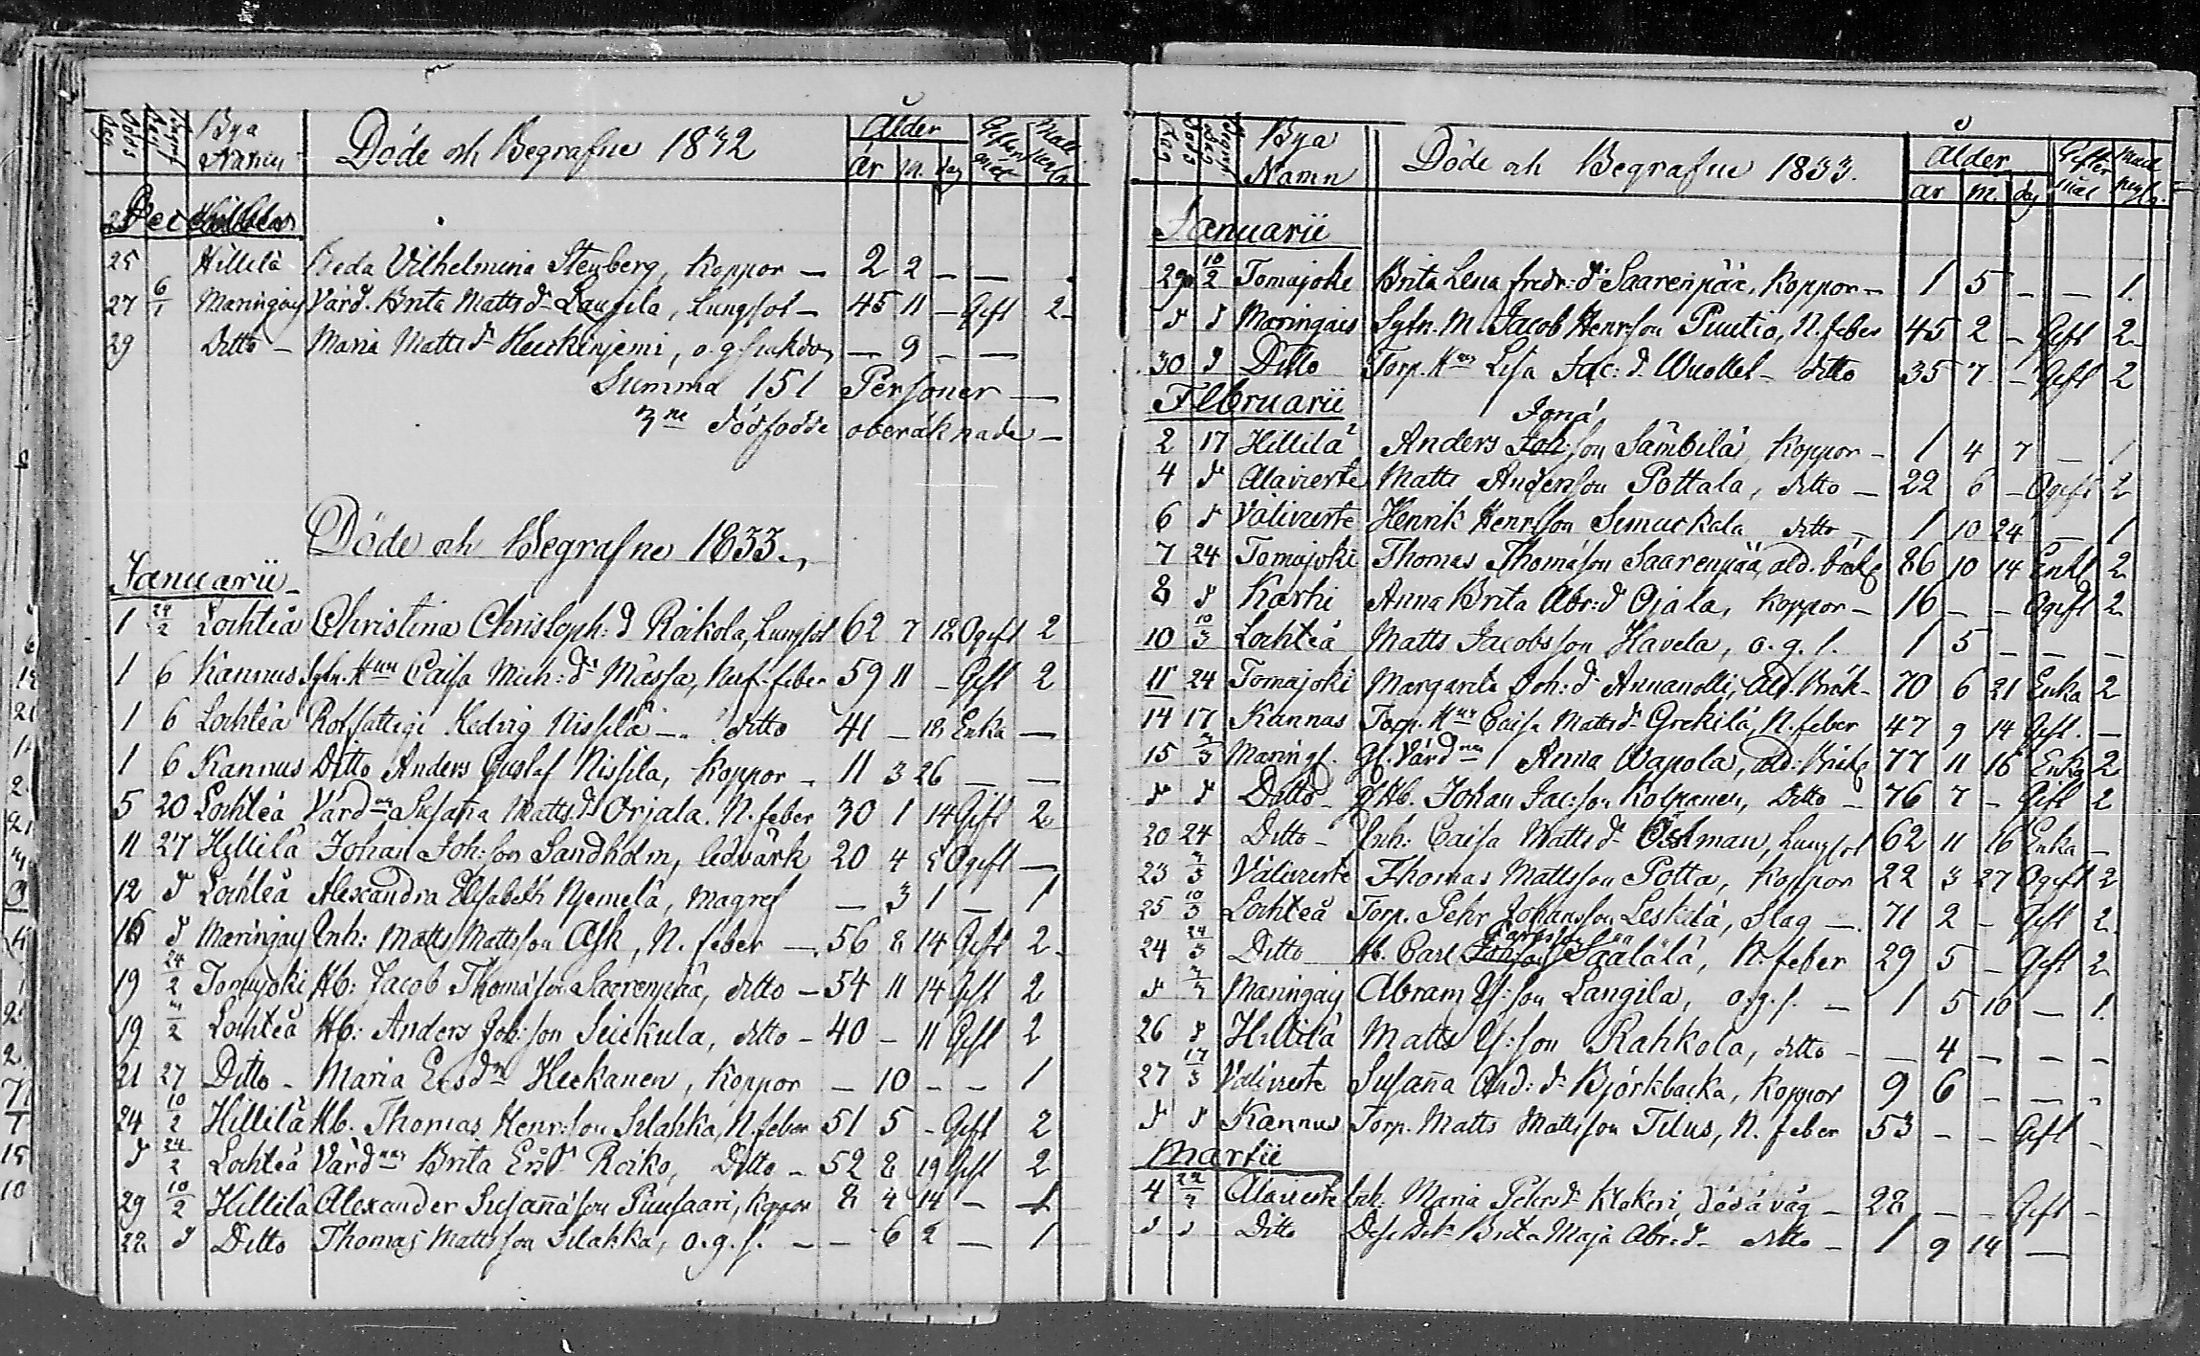 Döds dag Begraf dag Bya Namn Döde och Begrafne 1832 Ålder år m. dag Giftermål
December
25 Hillilä Freda Vilhelmina Stenberg, Koppor — 2 2 — —
27 6/1 Maringay Värd. Brita Matts dr Laugila, Lungsot — 45 11 — Gift 2
29 Ditto — Maria Matts dr Heickinjemi, o.g. — 9 — —
Summa 151 Personer —
3ne dödfödde oberäknade —
Döde och Begrafne 1833.
Januarii
1 24/2 Lochteå Christina Christoph: d Roikola, Lungsot 62 7 18 Ogift 2
1 6 Kannus Sytn. Hun Caisa Mich: dr Massa, Nerf-feber 59 11 — Gift 2
1 6 Lochteå Rotfattigi Hedvig Nissilä — ditto 41 — 18 Enka —
1 6 Kannus Ditto Anders Gustaf Nissila, Koppor — 11 3 26 — —
5 20 Lochteå Värdnn Susaña Matts dr Orjala. N. feber 30 1 14 Gift 2
11 27 Hillilä Johan Joh: son Sandholm, ledvärk 20 4 5 Ogift —
12 d Lochteå Alexandra Elisabeth Njemelä, magref — 3 1 — 1
16 d Maringay Inh: Matts Mattsson Ask, N. feber — 56 8 14 Gift 2
19 24/2 Tomujoki Hb: Jacob Thomasson Saarenpää, ditto — 54 11 14 Gift 2
19 /2 Lochteå Hb: Anders Joh: son Seickula, ditto — 40 — 11 Gift 2
21 27 Ditto — Maria Ers dr Heckanen, Koppor — 10 — — 1
24 10/2 Hillilä Hb. Thomas Henr: son Silahka, N. feber 51 5 — Gift 2
d 24/2 Lochteå Värdnn Brita Ers d Roiko, Ditto — 52 8 19 Gift 2
29 10/2 Hillilä Alexander Susañason Puusaari, Koppor 8 4 14 — 1
22 d Ditto Thomas Mattsson Silahka, o.g.s. — — 6 2 — 1
Bya Namn Döde och Begrafne 1833. Ålder år m. dag Giftermål
Januarii
29 10/2 Tomajoki Brita Lena Fredr: d. Saarenpää, Koppor — 1 5 — — 1.
d d Maringais Sytn. M. Jacob Henrsson Puutio, N. feber 45 2 — Gift 2
30 d Ditto Torp. Hun Lisa Jac: d. Wuollet — ditto 35 7 — Gift 2
Februarii
Igna
2 17 Hillilä Anders Joh: son Sämbilä Koppor — 1 4 7 — 1
4 d Alavierte Matts Andersson Pottala, ditto — 22 6 — Ogift 2
6 d Välivierte Henrik Henrsson Simuckala ditto — 1 10 24 — 1
7 24 Tomajoki Thomas Thomasson Saarenpää, åld. bräckl 86 10 14 Enkl 2
8 d Karhi Anna Brita Abr: d Ojala, Koppor — 16 — — Ogift 2
10 10/3 Lochteå Matts Jacobsson Havela, o.g.s. 1 5 — — —
11 24 Tomajoki Margareta Joh: dr Annanolli, Åld. Bräk — 70 6 21 Enka 2
14 17 Kannas Torp. Hun Caisa Matts dr Grekilä, N. feber 47 9 14 Gift. —
15 /3 Marings. Gl. Värdnn Anna Wapola, åld: Bräkl 77 11 16 Enka 2
d d Ditto — Gl Hb. Johan Jac: son Kolpanen, Ditto — 76 7 — Gift 2
20 24 Ditto — Inh: Caisa Matts dr Östman, Lungsot 62 11 16 Enka —
23 /3 Välivierte Thomas Mattsson Potta, Koppor 22 3 27 Ogift 2
25 10/3 Lochteå Torp. Pehr Johansson Leskelä, Slag — 71 2 — Gift 2
Carlsson
24 24/3 Ditto Hb. Carl Johansson Säälälä, N. feber 29 5 — Gift 2
d Maringay Abram Ys: son Langila, o.g.s. — 1 5 10 — 1.
26 d Hillilä Matts Ys: son Rahkola, ditto — — 4 — — —
27 17/3 Välivierte Susaña And: dr Björkbacka, Koppor 9 6 — — —
d d Kannus Torp. Matts Mattsson Tilus, N. feber 53 — — Gift —
Martii
4 Alavierte Inh. Maria Peters dr Klokeri, död å väg — 28 — — Gift —
d d Ditto Dess Dotr Brita Maja Abr: d — ditto — 1 9 14 —